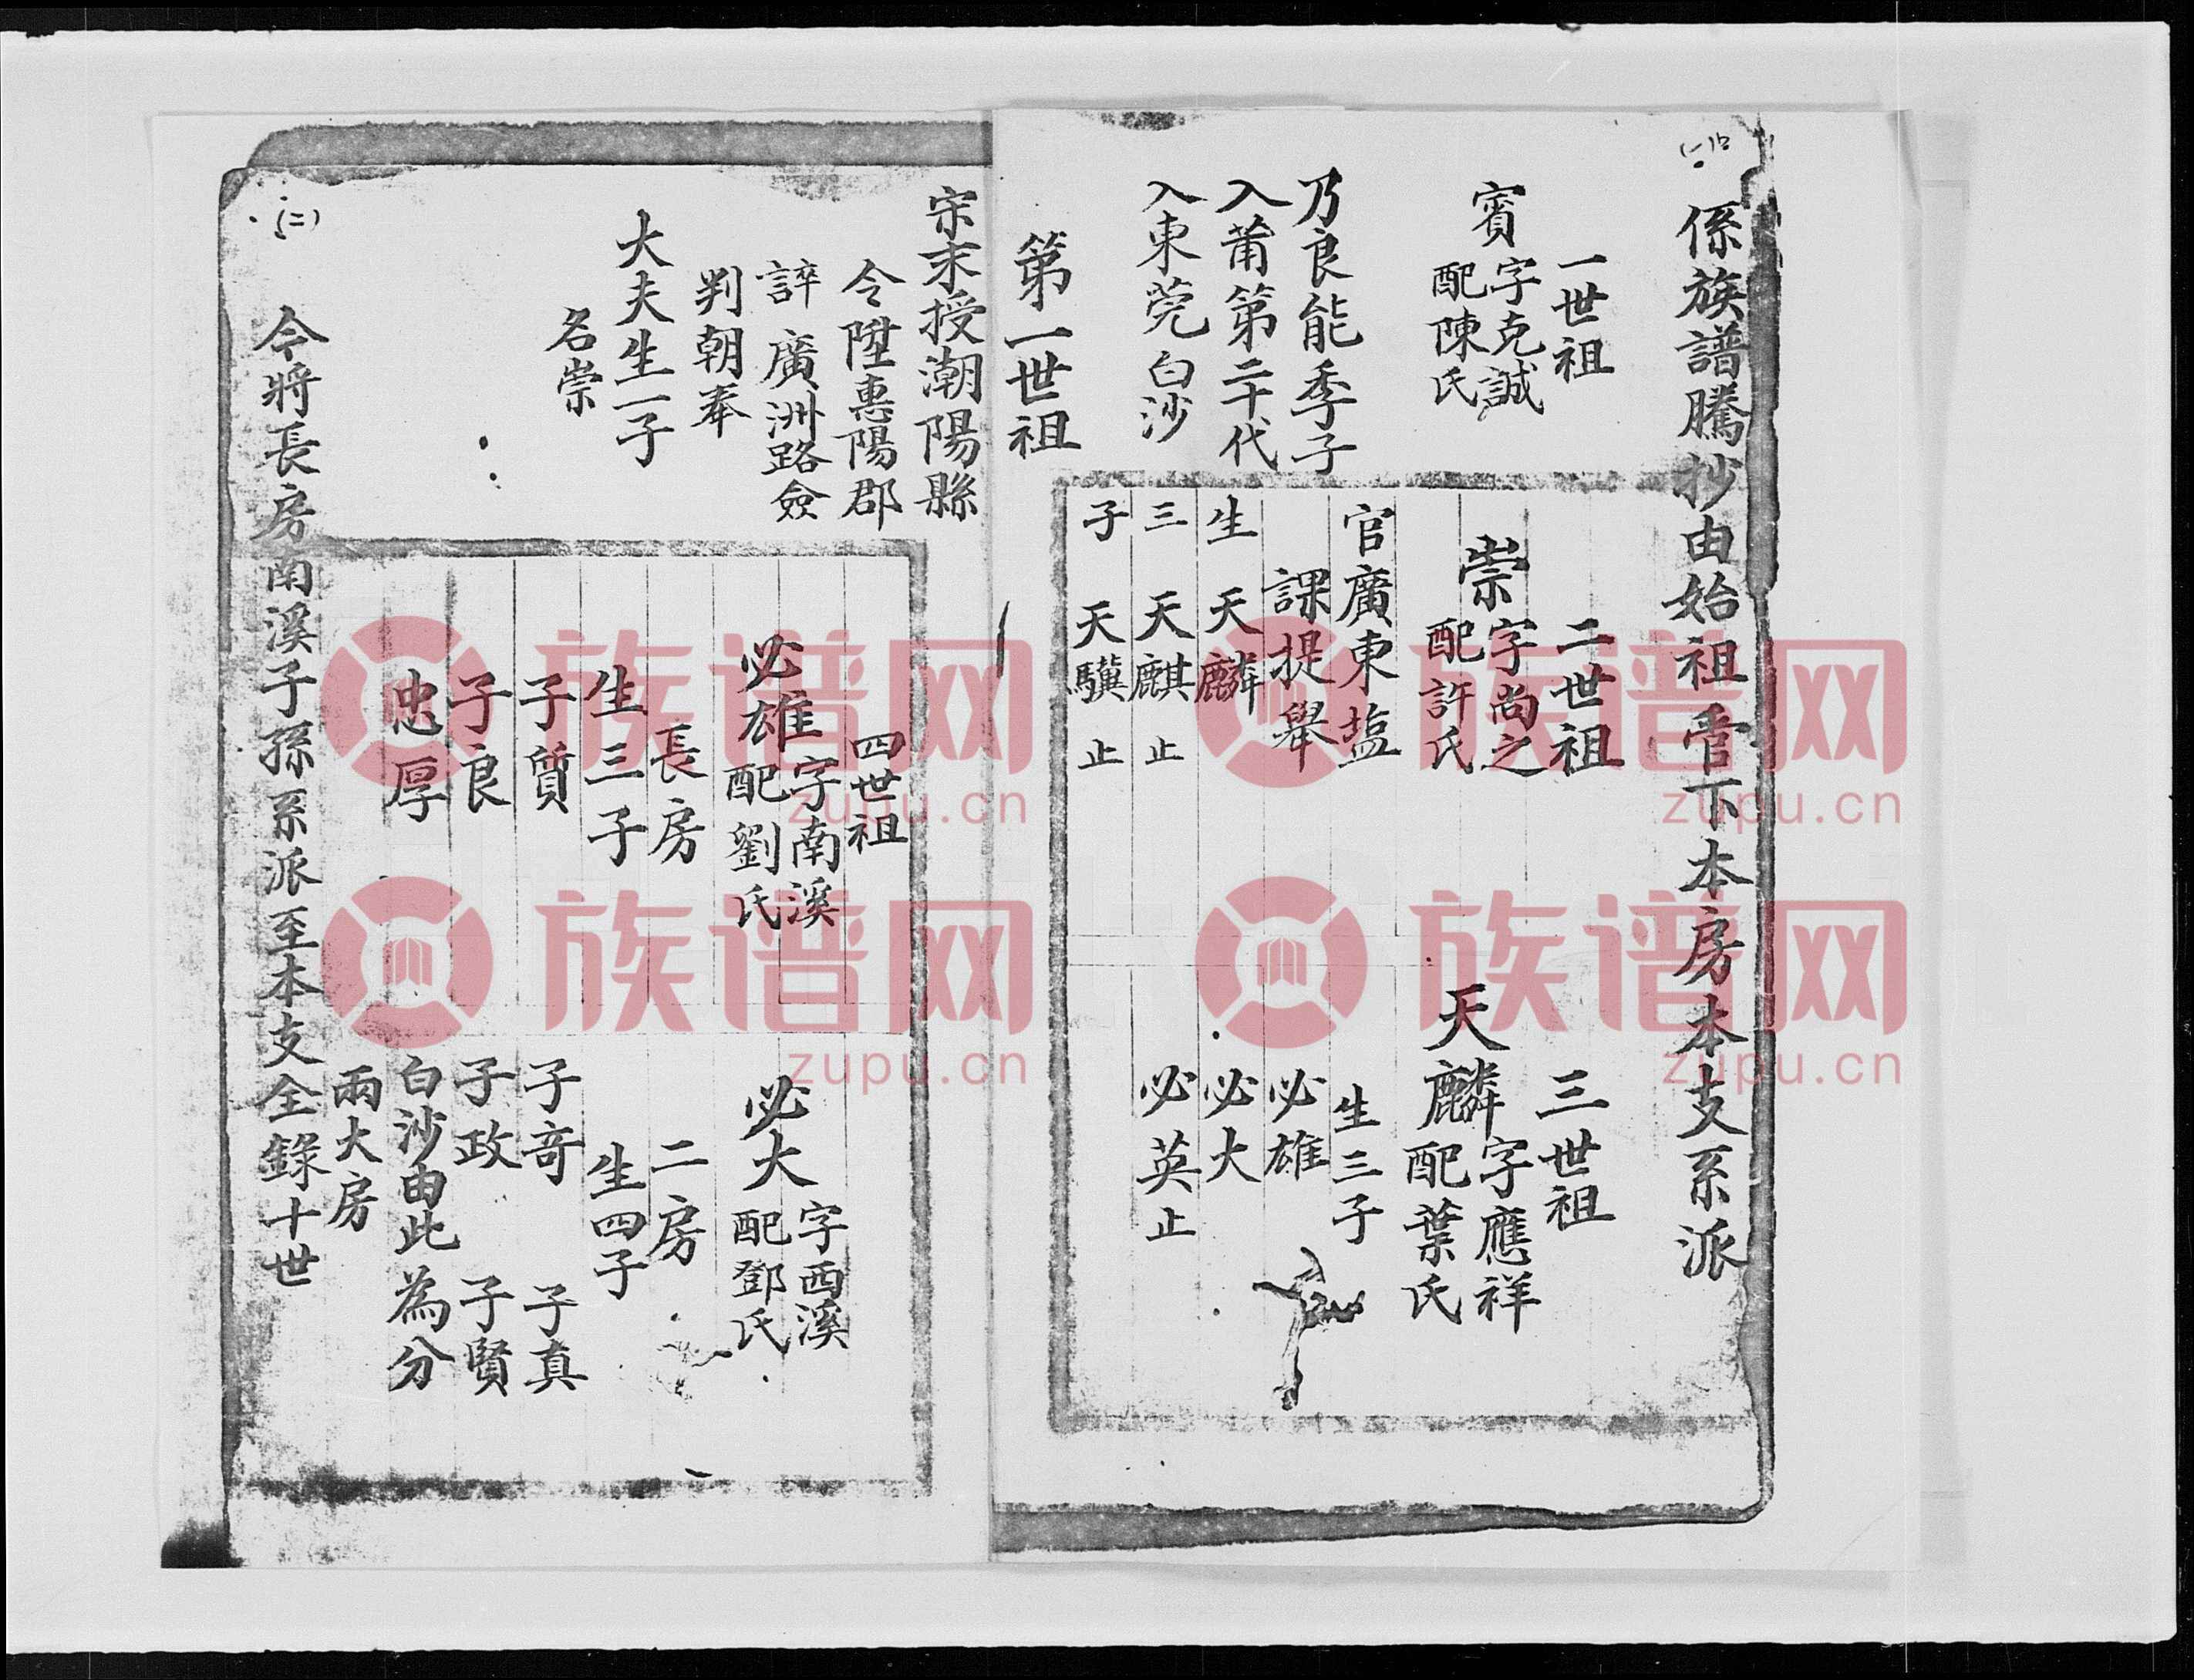 係族譜騰抄由始祖管下本房本支系派
一世祖
賓 字克誠
配陳氏
乃良能季子
入莆第二十代
入東莞白沙
第一世祖
二世祖
崇 字尚之
配許氏
官廣東塩
課提舉
生 天麟
三 天麒 止
子 天驥 止
三世祖
天麟 字應祥
配葉氏
生三子
必雄
必大
必英 止
宋末授潮陽縣
令陞惠陽郡
誶廣洲路僉
判朝奉
大夫生一子
名崇
四世祖
必雄 字南溪
配劉氏
長房
生三子
子質
子良
忠厚
必大 字西溪
配鄧氏
二房
生四子
子奇 子真
子政 子賢
白沙由此為分
兩大房
(二)
今將長房南溪子孫系派至本支全錄十世
族谱网
zupu.cn
族谱网
zupu.cn
族谱网
zupu.cn
族谱网
zupu.cn